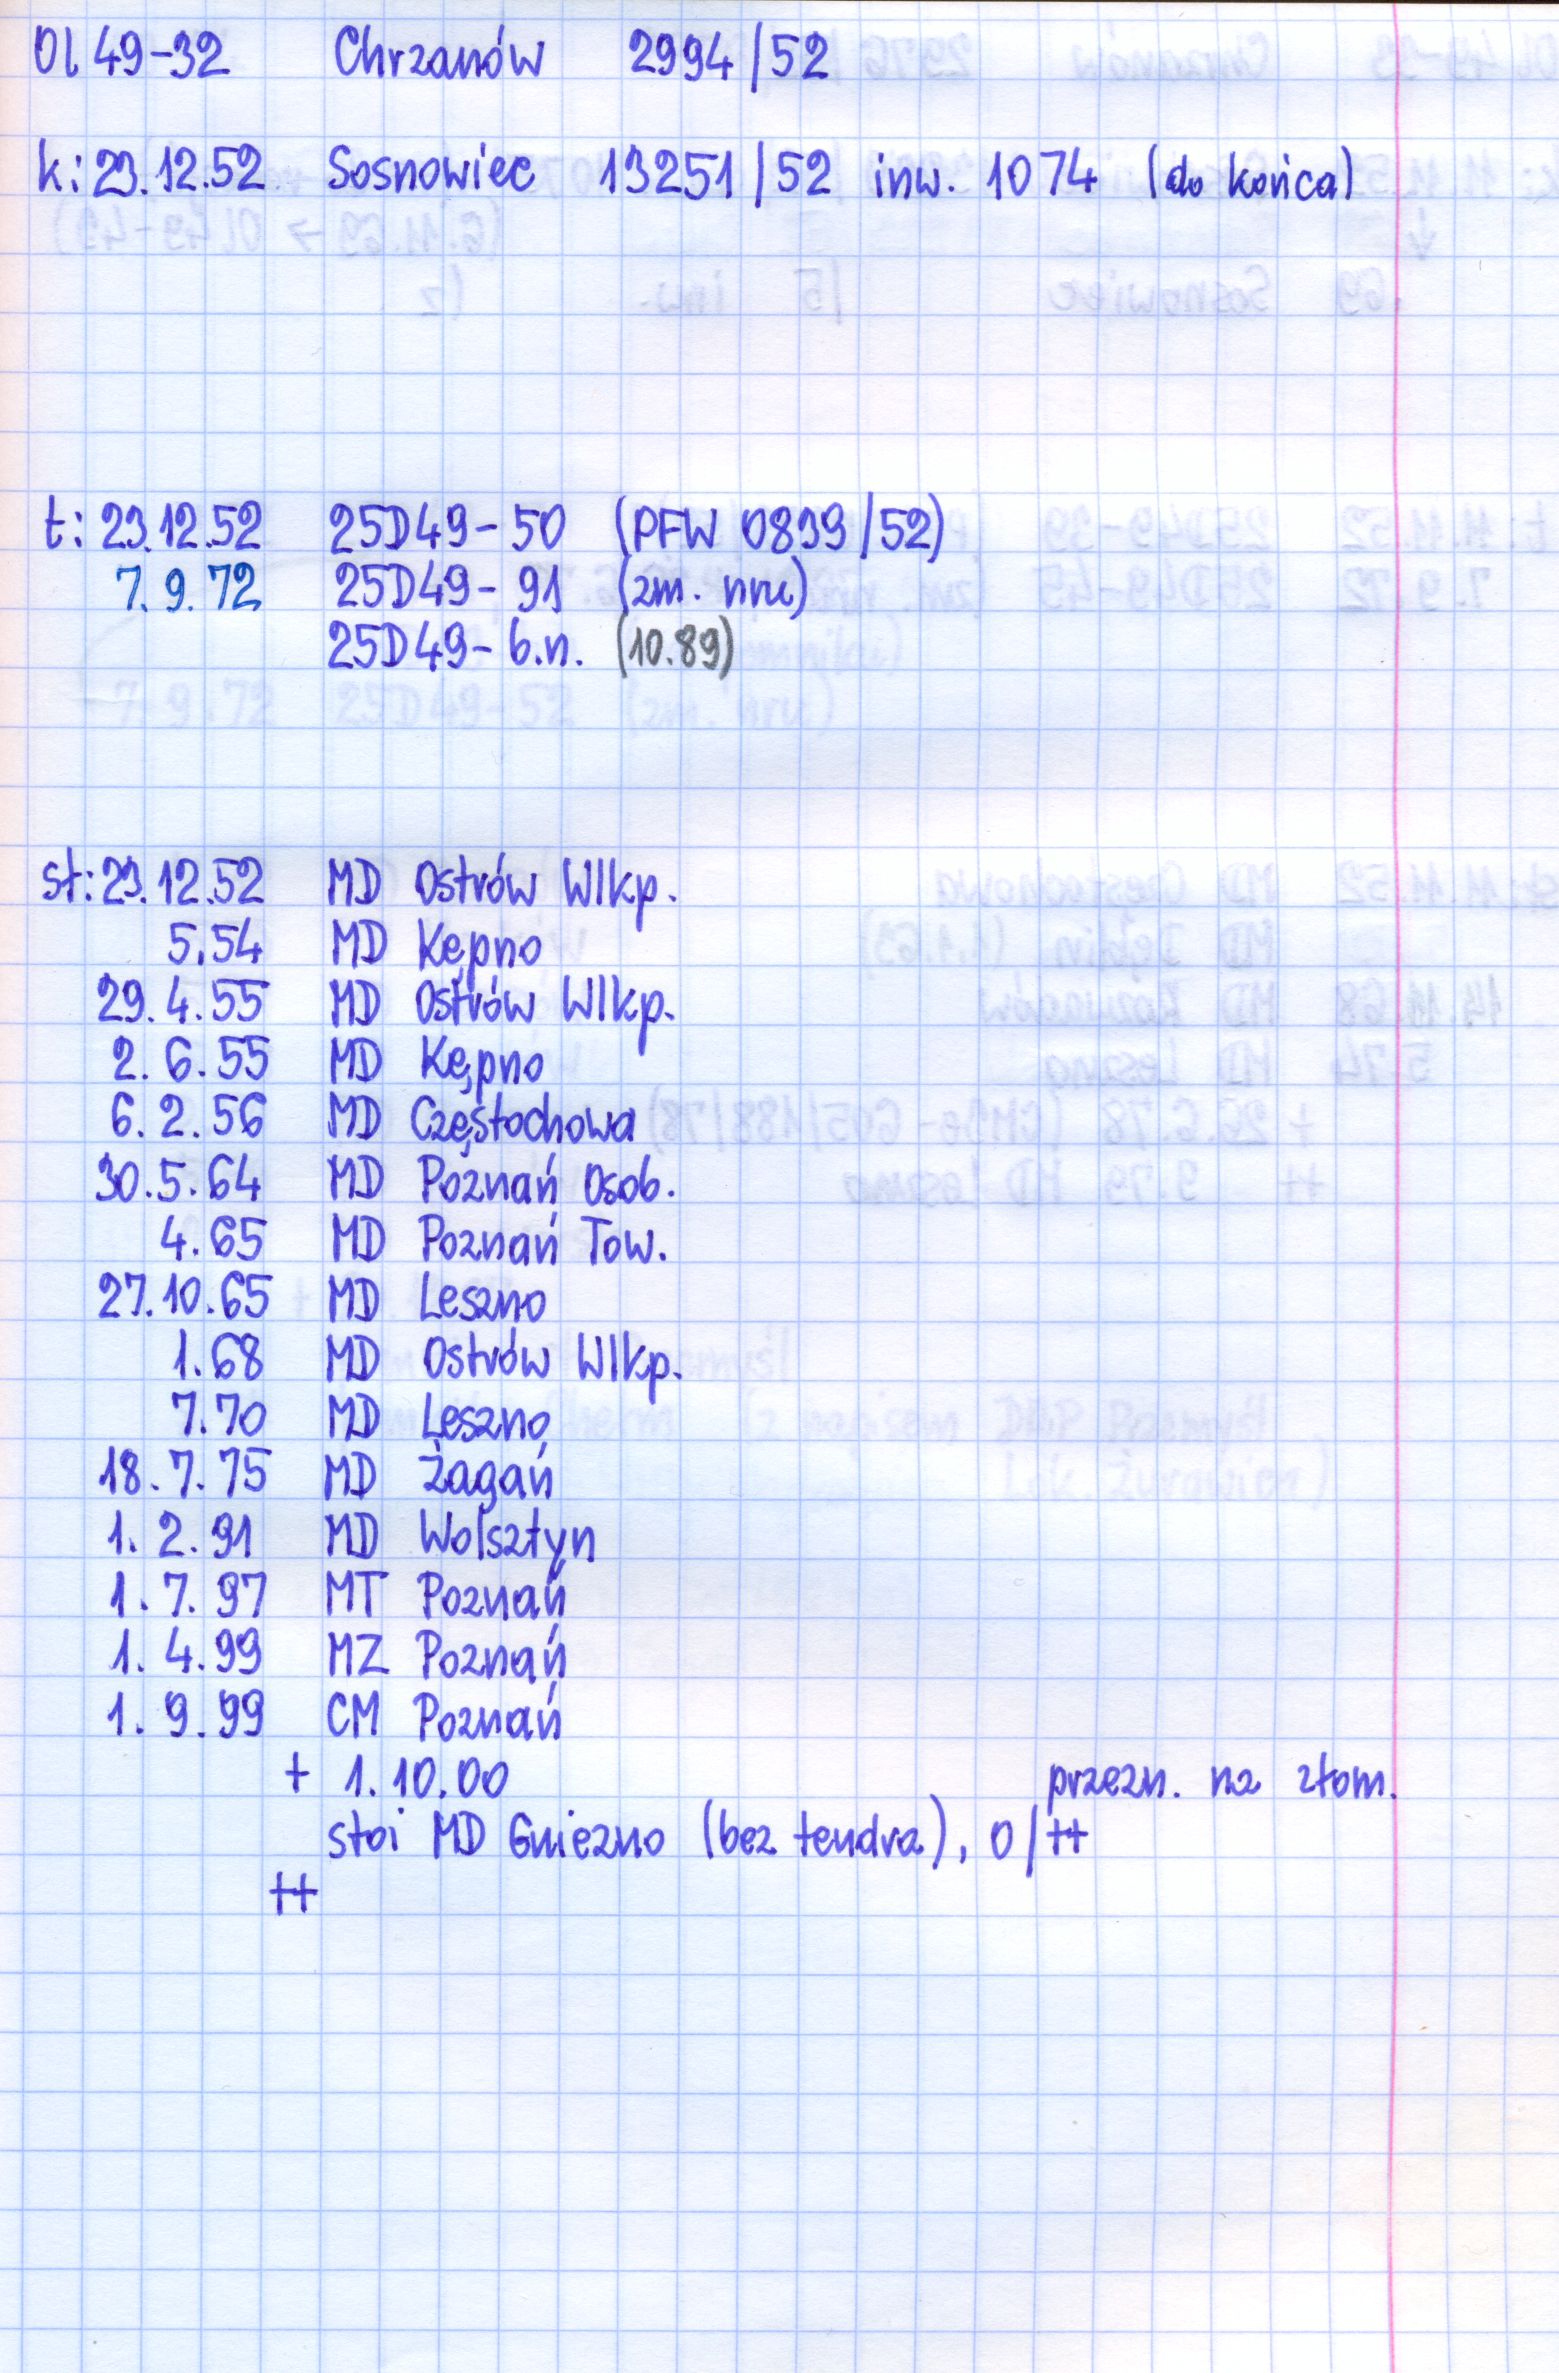 Ol 49-32 Chrzanów 2994/52
k: 23.12.52 Sosnowiec 13251/52 inw. 1074 (do końca)
t: 23.12.52 25D49-50 (PFW 0899/52)
7.9.72 25D49-91 (zm. nru)
25D49-b.n. (10.89)
st: 23.12.52 MD Ostrów Wlkp.
5.54 MD Kępno
29.4.55 MD Ostrów Wlkp.
2.6.55 MD Kępno
6.2.56 MD Częstochowa
30.5.64 MD Poznań Osob.
4.65 MD Poznań Tow.
27.10.65 MD Leszno
1.68 MD Ostrów Wlkp.
7.70 MD Leszno
18.7.75 MD Żagań
1.2.91 MD Wolsztyn
1.7.97 MT Poznań
1.4.99 MZ Poznań
1.9.99 CM Poznań
+ 1.10.00 przezn. na złom.
stoi MD Gniezno (bez tendra), 0/++
++